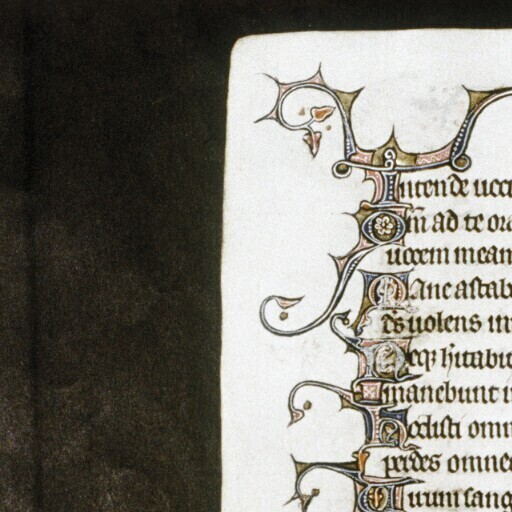 Intende uoci
Qm̄ ad te ora
uocem meam
Mane astab
ds̄ uolens in
Neqȝ hītabit
manebunt i
Odisti omn
perdes omnes
Uirum sang